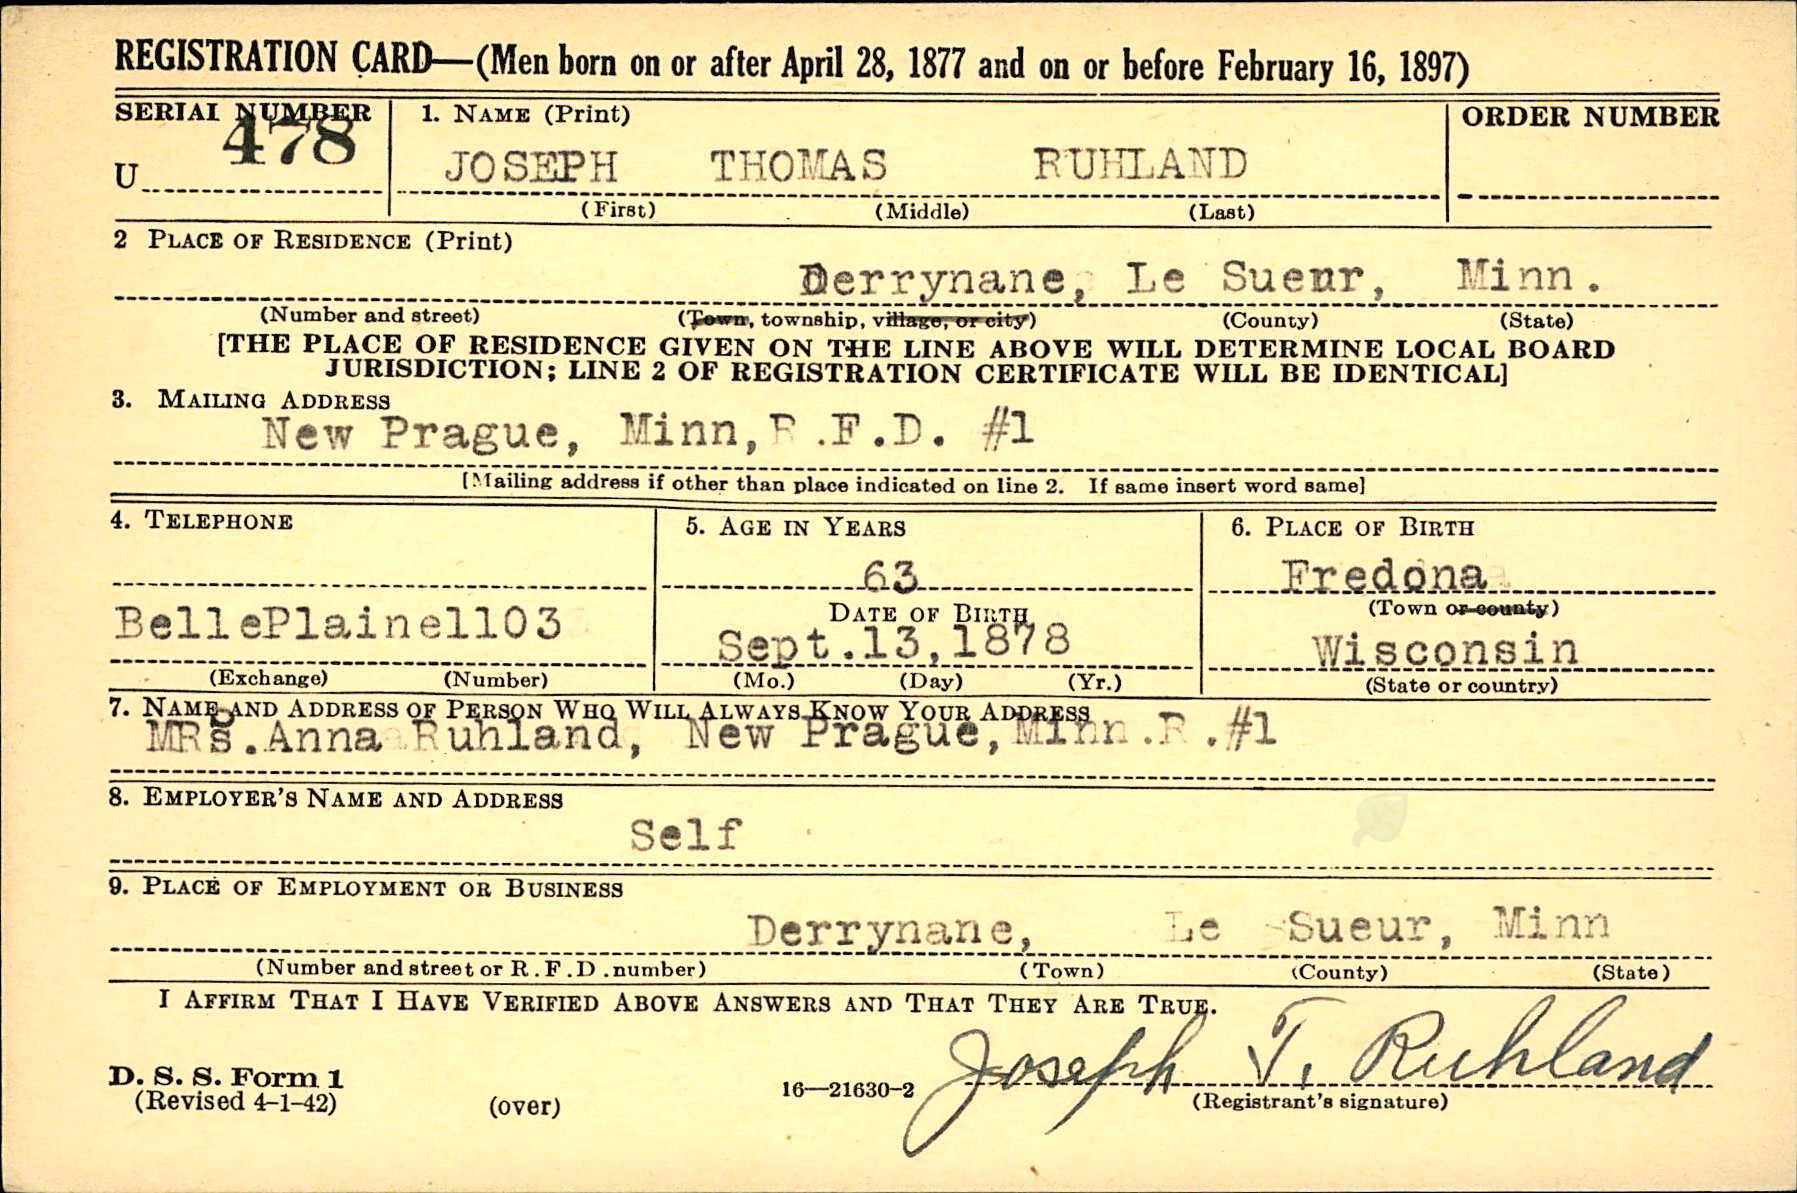 REGISTRATION CARD—(Men born on or after April 28, 1877 and on or before February 16, 1897)
SERIAL NUMBER 1. NAME (Print) ORDER NUMBER
U 478 JOSEPH THOMAS RUHLAND
(First) (Middle) (Last)
2 PLACE OF RESIDENCE (Print)
Derrynane, Le Sueur, Minn.
(Number and street) (Town, township, village, or city) (County) (State)
[THE PLACE OF RESIDENCE GIVEN ON THE LINE ABOVE WILL DETERMINE LOCAL BOARD
JURISDICTION; LINE 2 OF REGISTRATION CERTIFICATE WILL BE IDENTICAL]
3. MAILING ADDRESS
New Prague, Minn, R.F.D. #1
[Mailing address if other than place indicated on line 2. If same insert word same]
4. TELEPHONE 5. AGE IN YEARS 6. PLACE OF BIRTH
63 Fredona
DATE OF BIRTH (Town or county)
BellePlaine1103 Sept.13,1878 Wisconsin
(Exchange) (Number) (Mo.) (Day) (Yr.) (State or country)
7. NAME AND ADDRESS OF PERSON WHO WILL ALWAYS KNOW YOUR ADDRESS
MRs.Anna Ruhland, New Prague, Minn.R.#1
8. EMPLOYER'S NAME AND ADDRESS
Self
9. PLACE OF EMPLOYMENT OR BUSINESS
Derrynane, Le Sueur, Minn
(Number and street or R.F.D. number) (Town) (County) (State)
I AFFIRM THAT I HAVE VERIFIED ABOVE ANSWERS AND THAT THEY ARE TRUE.
Joseph T. Ruhland
D. S. S. Form 1
(Revised 4-1-42) (over) 16—21630-2 (Registrant's signature)